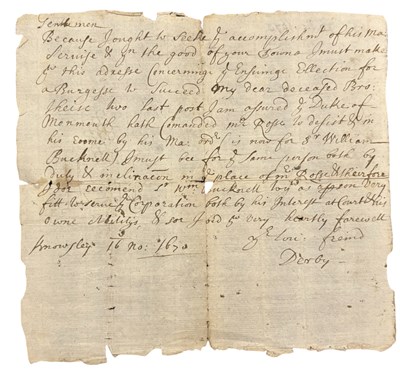 Gentlemen
Because I ought to desire ye accomplishment of his Ma
Servise & In the good of your Towne I must make
this adresse Concerninge ye Ensuinge Ellection for
a Burgesse to Succeed My dear deceased Bro:
theise two last post, I am assured ye Duke of
Monmouth hath Comanded mr Rosse to desist & on
his roome by his Ma: ordrs is now for Sr William
Bucknell, I must bee for ye Same person both by
duty & inclinacon in ye place of mr Rosse & therefore
doe recomend Sr Wm Bucknell person very
fitt to serve ye Corporation both by his Interest at Court & his
owne Abilitys & soe I bid you very heartly farewell
Knowsley 16 No: 1670
yr Lov: freind
Derby